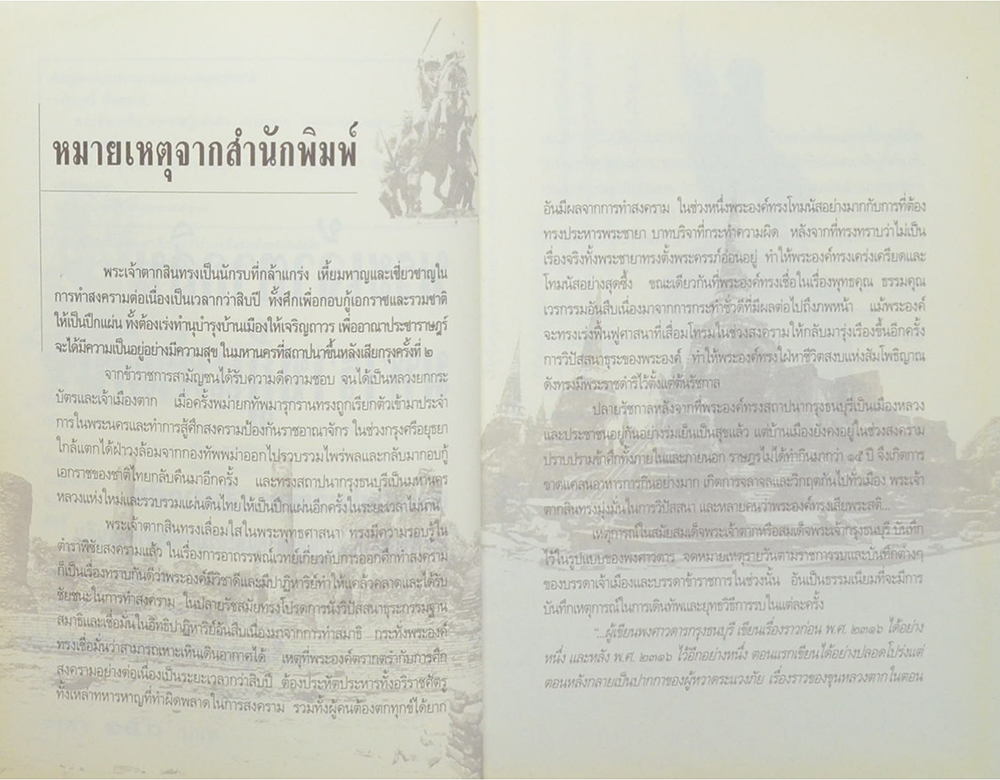 หมายเหตุจากสำนักพิมพ์
พระเจ้าตากสินทรงเป็นนักรบที่กล้าแกร่ง เหี้ยมหาญและเชี่ยวชาญใน
การทำสงครามต่อเนื่องเป็นเวลากว่าสิบปี ทั้งศึกเพื่อกอบกู้เอกราชและรวมชาติ
ให้เป็นปึกแผ่น ทั้งต้องเร่งทำนุบำรุงบ้านเมืองให้เจริญถาวร เพื่ออาณาประชาราษฎร์
จะได้มีความเป็นอยู่อย่างมีความสุข ในมหานครที่สถาปนาขึ้นหลังเสียกรุงครั้งที่ ๒
จากข้าราชการสามัญชนได้รับความดีความชอบ จนได้เป็นหลวงยกกระ
บัตรและเจ้าเมืองตาก เมื่อครั้งพม่ายกทัพมารุกรานทรงถูกเรียกตัวเข้ามาประจำ
การในพระนครและทำการสู้ศึกสงครามป้องกันราชอาณาจักร ในช่วงกรุงศรีอยุธยา
ใกล้แตกได้ฝ่าวงล้อมจากกองทัพพม่าออกไปรวบรวมไพร่พลและกลับมากอบกู้
เอกราชของชาติไทยกลับคืนมาอีกครั้ง และทรงสถาปนากรุงธนบุรีเป็นมหานคร
หลวงแห่งใหม่และรวบรวมแผ่นดินไทยให้เป็นปึกแผ่นอีกครั้งในระยะเวลาไม่นาน
พระเจ้าตากสินทรงเลื่อมใสในพระพุทธศาสนา ทรงมีความรอบรู้ใน
ตำราพิชัยสงครามแล้ว ในเรื่องการอาถรรพณ์เวทย์เกี่ยวกับการออกศึกทำสงคราม
ก็เป็นเรื่องทราบกันดีว่าพระองค์มีวิชาดีและมีปาฏิหาริย์ทำให้แคล้วคลาดและได้รับ
ชัยชนะในการทำสงคราม ในปลายรัชสมัยทรงโปรดการนั่งวิปัสสนาธุระกรรมฐาน
สมาธิและเชื่อมั่นในอิทธิปาฏิหาริย์อันสืบเนื่องมาจากการทำสมาธิ กระทั่งพระองค์
ทรงเชื่อมั่นว่าสามารถเหาะเหินเดินอากาศได้ เหตุที่พระองค์ตรากตรำกับการศึก
สงครามอย่างต่อเนื่องเป็นระยะเวลากว่าสิบปี ต้องประหัตประหารทั้งอริราชศัตรู
ทั้งเหล่าทหารหาญที่ทำผิดพลาดในการสงคราม รวมทั้งผู้คนต้องตกทุกข์ได้ยาก
อันมีผลจากการทำสงคราม ในช่วงหนึ่งพระองค์ทรงโทมนัสอย่างมากกับการที่ต้อง
ทรงประหารพระชายา บาทบริจาที่กระทำความผิด หลังจากที่ทรงทราบว่าไม่เป็น
เรื่องจริงทั้งพระชายาทรงตั้งพระครรภ์อ่อนอยู่ ทำให้พระองค์ทรงเคร่งเครียดและ
โทมนัสอย่างสุดซึ้ง ขณะเดียวกันที่พระองค์ทรงเชื่อในเรื่องพุทธคุณ ธรรมคุณ
เวรกรรมอันสืบเนื่องมาจากการกระทำชั่วดีที่มีผลต่อไปถึงภพหน้า แม้พระองค์
จะทรงเร่งฟื้นฟูศาสนาที่เสื่อมโทรมในช่วงสงครามให้กลับมารุ่งเรืองขึ้นอีกครั้ง
การวิปัสสนาธุระของพระองค์ ทำให้พระองค์ทรงใฝ่หาชีวิตสงบแห่งสัมโพธิญาณ
ดังทรงมีพระราชดำริไว้ตั้งแต่ต้นรัชกาล
ปลายรัชกาลหลังจากที่พระองค์ทรงสถาปนากรุงธนบุรีเป็นเมืองหลวง
และประชาชนอยู่กันอย่างร่มเย็นเป็นสุขแล้ว แต่บ้านเมืองยังคงอยู่ในช่วงสงคราม
ปราบปรามข้าศึกทั้งภายในและภายนอก ราษฎรไม่ได้ทำกินมากว่า ๑๕ ปี จึงเกิดการ
ขาดแคลนอาหารการกินอย่างมาก เกิดการจลาจลและวิกฤตกันไปทั่วเมือง พระเจ้า
ตากสินทรงมุ่งมั่นในการวิปัสสนา และหลายคนว่าพระองค์ทรงเสียพระสติ...
เหตุการณ์ในสมัยสมเด็จพระเจ้าตากหรือสมเด็จพระเจ้ากรุงธนบุรี บันทึก
ไว้ในรูปแบบของพงศาวดาร จดหมายเหตุรายวันตามราชการรบและบันทึกต่างๆ
ของบรรดาเจ้าเมืองและบรรดาข้าราชการในช่วงนั้น อันเป็นธรรมเนียมที่จะมีการ
บันทึกเหตุการณ์ในการเดินทัพและยุทธวิธีการรบในแต่ละครั้ง
"...ผู้เขียนพงศาวดารกรุงธนบุรี เขียนเรื่องราวก่อน พ.ศ. ๒๓๑๖ ได้อย่าง
หนึ่ง และหลัง พ.ศ. ๒๓๑๖ ไว้อีกอย่างหนึ่ง ตอนแรกเขียนได้อย่างปลอดโปร่งแต่
ตอนหลังกลายเป็นปากกาของผู้หวาดระแวงภัย เรื่องราวของขุนหลวงตากในตอน